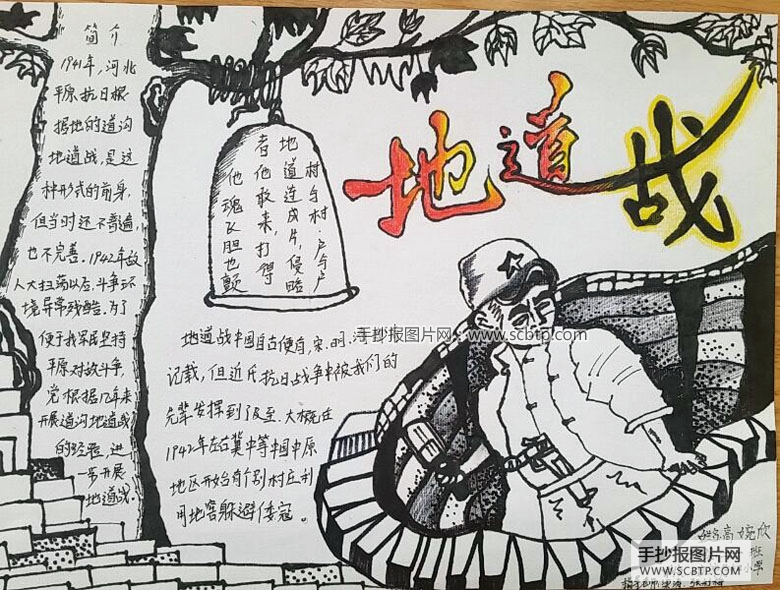 简介
1941年,河北
平原抗日根
据地的道沟
地道战,是这
种形式的前身,
但当时还不普遍,
也不完善。1942年敌
人大扫荡以后,斗争环
境异常残酷。为了
便于我军民坚持
平原对敌斗争,
党根据几年来
开展道沟地道战
的经验,进
一步开展
地道战。
村与村,户与户
地道连成片,侵略
者他敢来,打得
他魂飞胆也颤
地道战
地道战中国自古便有,宋、明、
记载,但近斤抗日战争中被我们的
先辈发挥到了及至。大概在
1942年左右冀中等中国中原
地区开始有个别村庄利
用地窖躲避倭寇。
手抄报图片网-www.scbtp.com
高婉欣
班
小学
手抄报图片网
WWW.SCBTP.COM